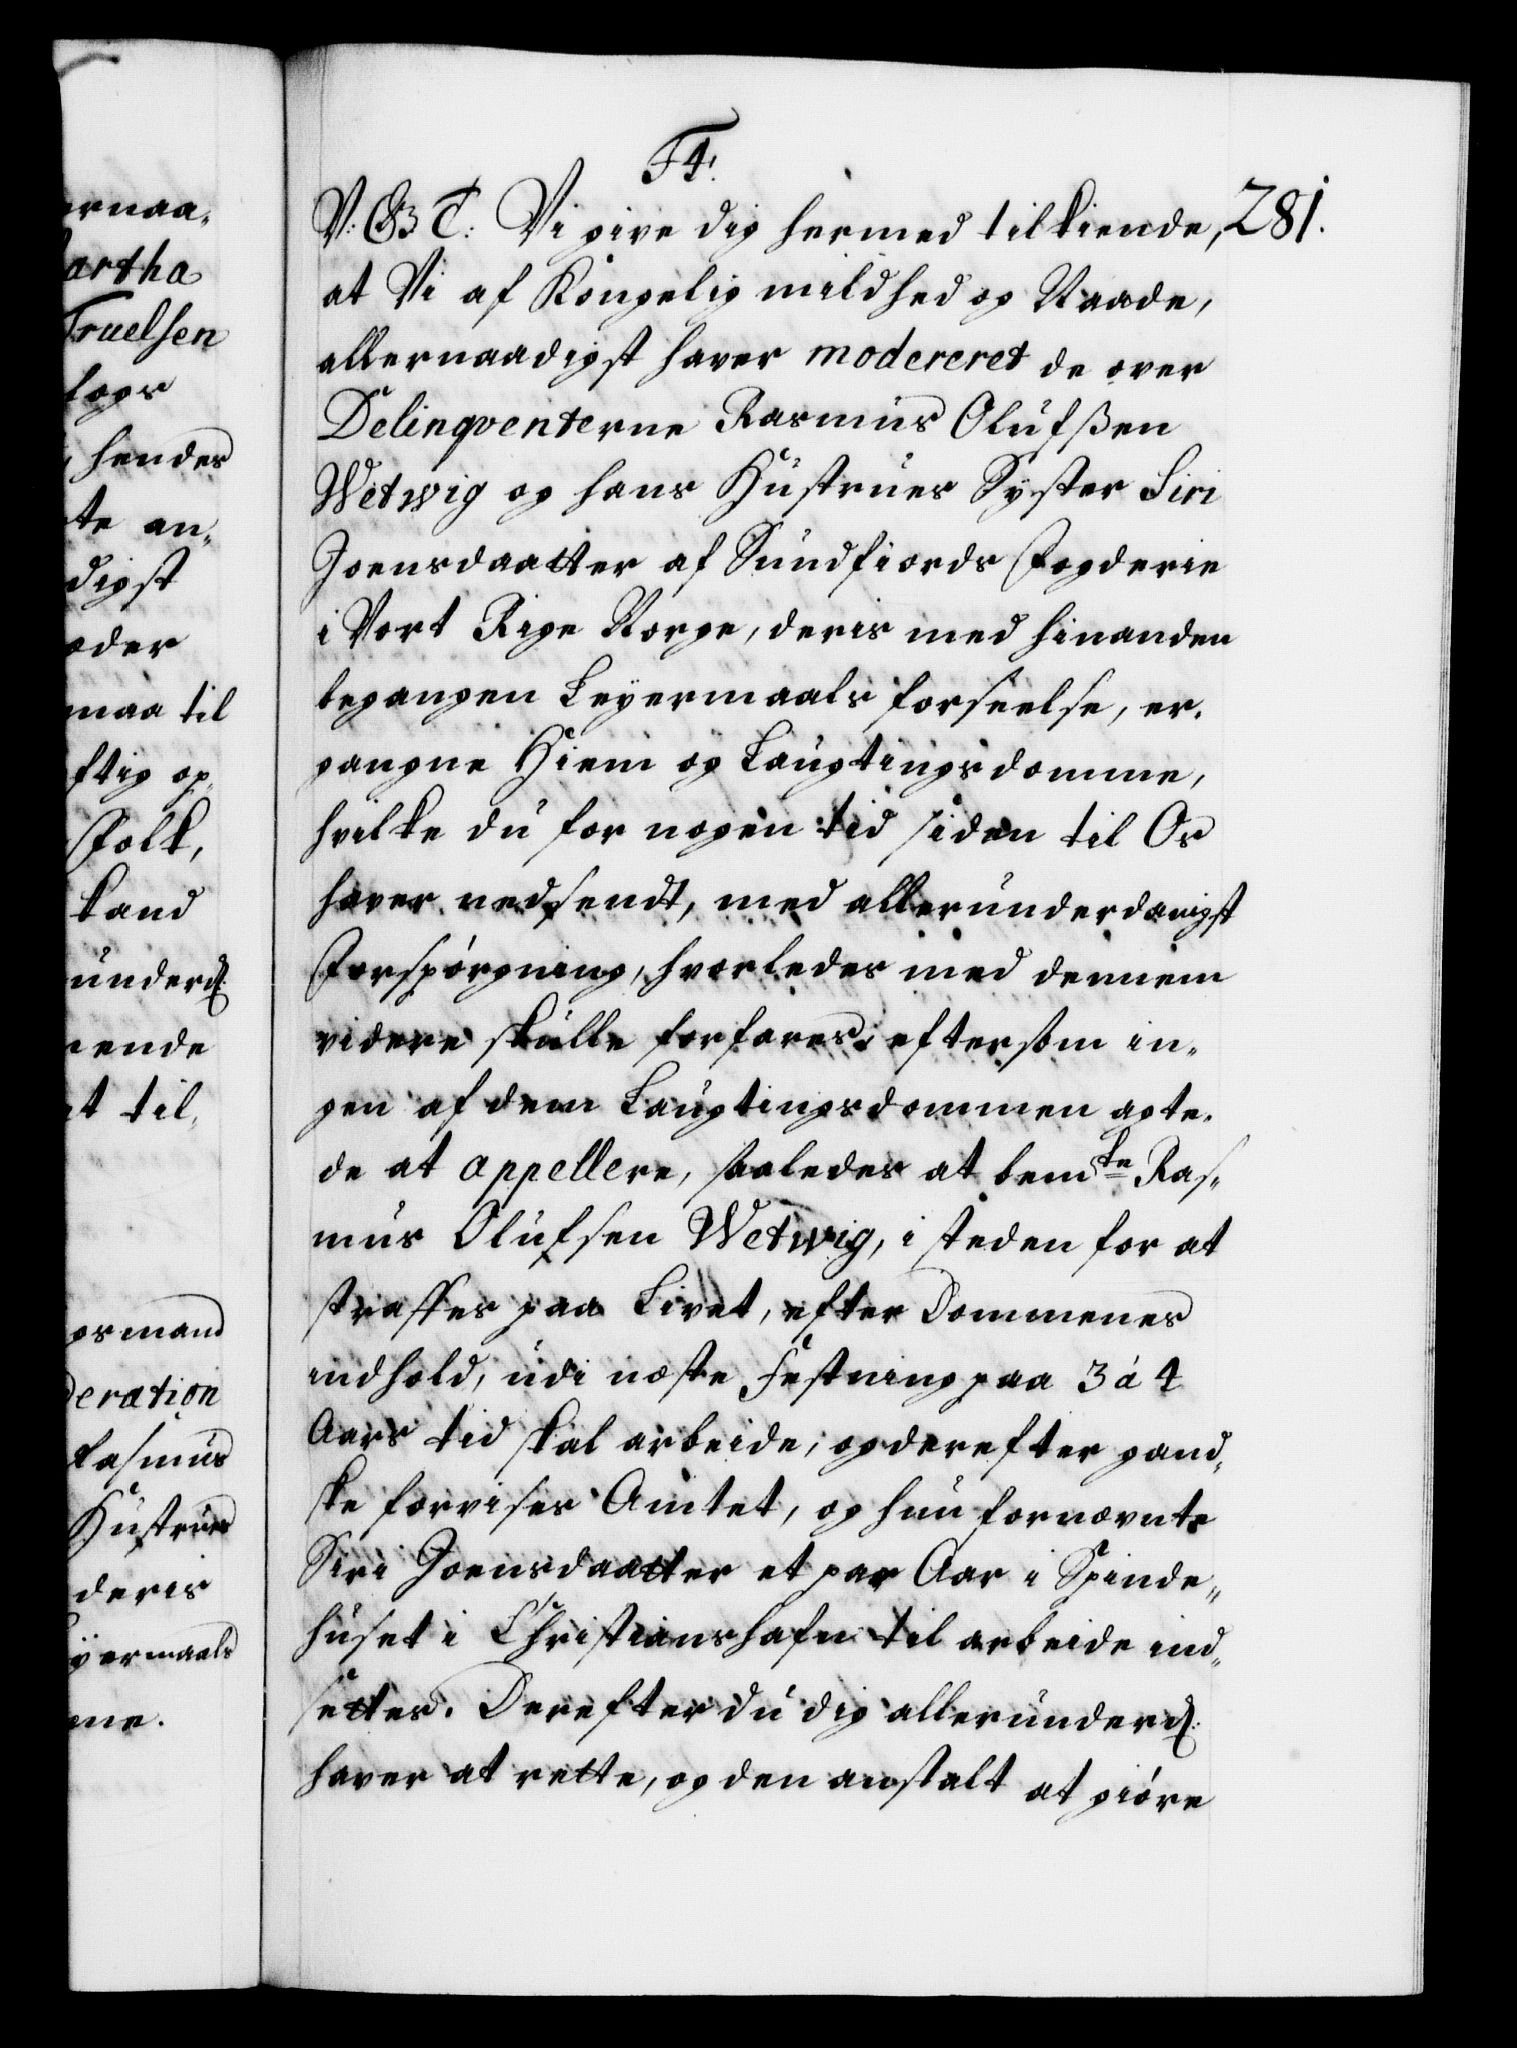 F4.
281.
V: G B T: Vi give dig hermed tilkiende,
at Vi af Kongelig mildhed og Naade,
allernaadigst haver modereret de over
Delinqventerne Rasmus Olufßen
Wetwig og hans Hustrues Syster Siri
Joensdaatter af Sundfiords Fogderie
i Vort Rige Norge, deris med hinanden
begangen Leyermaals forseelse, er-
gangne Hiem og Laugtingsdomme,
hvilke du for nogen tid siden til Os
haver nedsendt, med allerunderdanigst
Forspørgning, hvorledes med dennem
videre skulle forfares, eftersom in-
gen af dem Laugtingsdommen agte-
de at appellere, saaledes at bemte Ras-
mus Olufsen Wetwig, i steden for at
straffes paa Livet, efter Dommenes
indhold, udi næste Festning paa 3 á 4
Aars tid skal arbeide, og derefter gand-
ske forvises Amtet, og hun fornævnte
Siri Joensdaatter et par Aar i Spinde-
huset i Christianshafn til arbeide ind-
settes. Derefter du dig allerunderd:
haver at rette, og den anstalt at giøre
ernaa-
artha
Truelsen
hendes
te an-
digst
maa til
ftig op-
Folk,
kand
underd:
ende
t til-
osmand
deration
Rasmus
Hustrues
deris
yermaals
me.